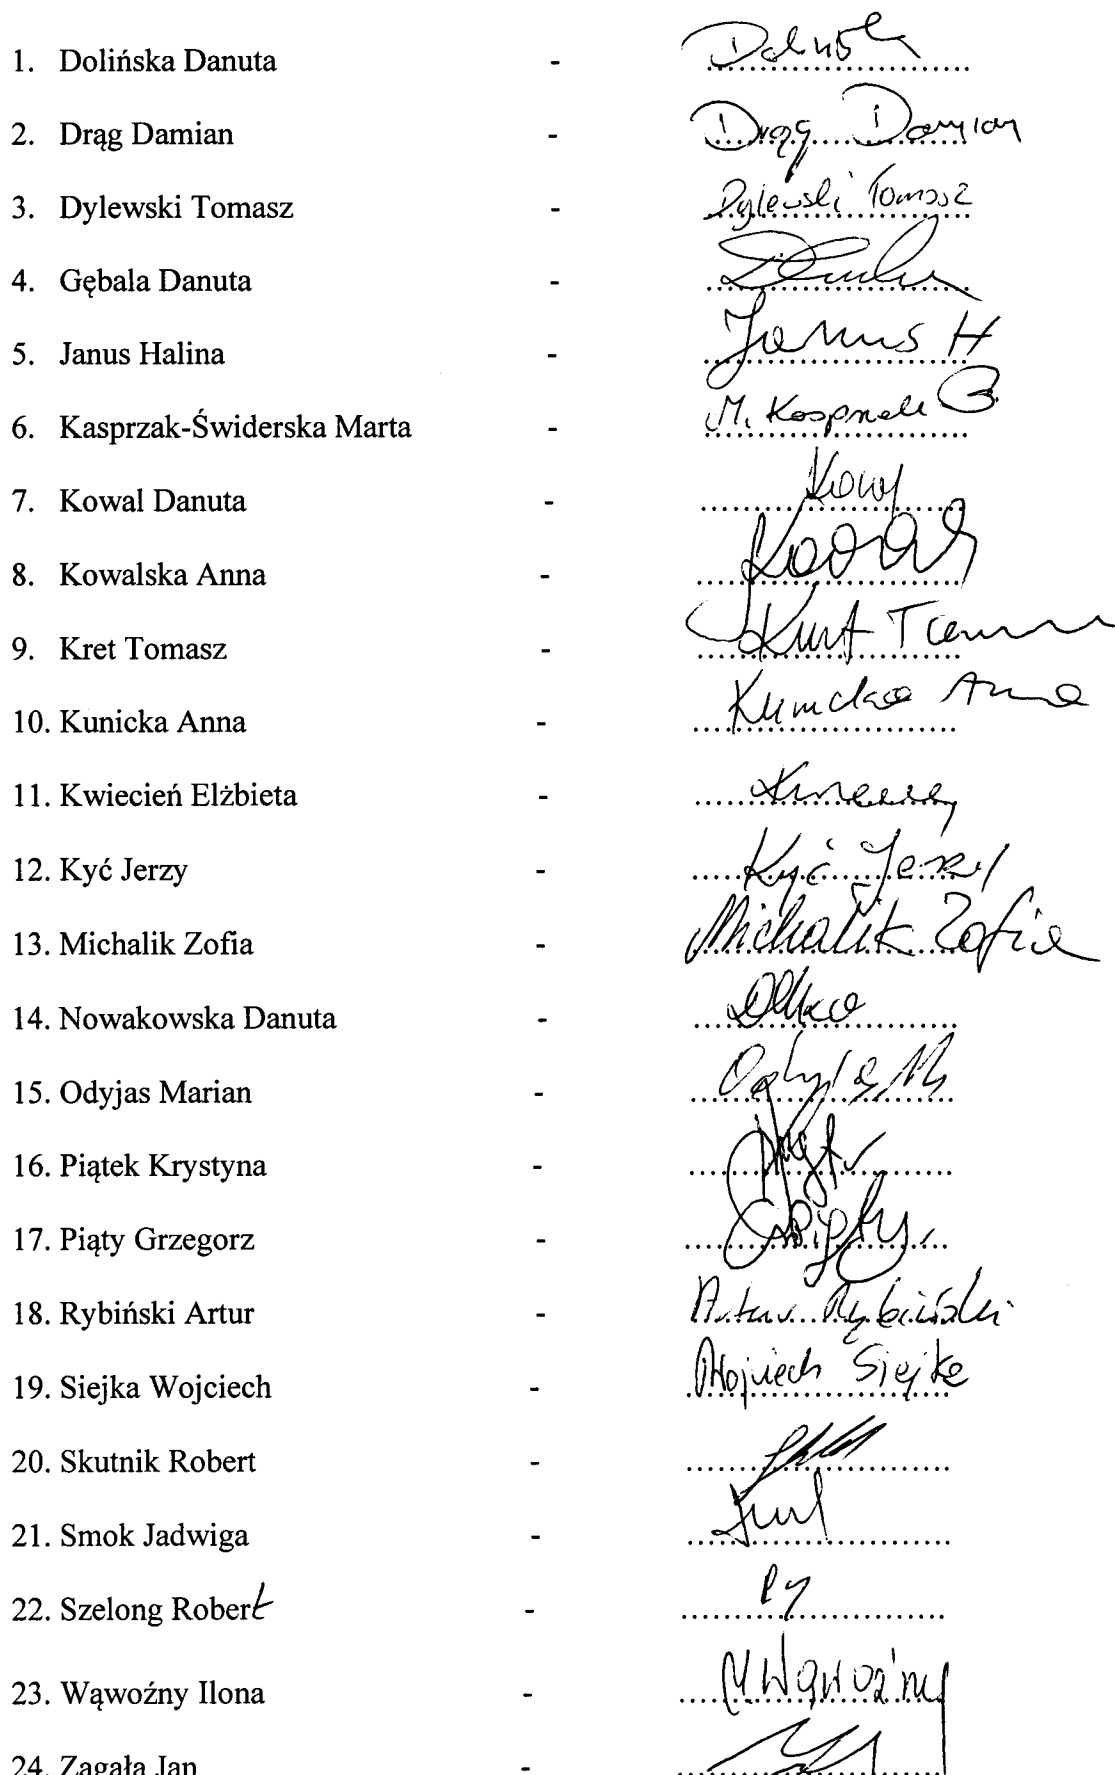 1. Dolińska Danuta -
2. Drąg Damian - Drąg Damian
3. Dylewski Tomasz - Dylewski Tomasz
4. Gębala Danuta -
5. Janus Halina - Janus H
6. Kasprzak-Świderska Marta - M.
7. Kowal Danuta -
8. Kowalska Anna -
9. Kret Tomasz -
10. Kunicka Anna - Kunicka Anna
11. Kwiecień Elżbieta -
12. Kyć Jerzy - Kyć Jerzy
13. Michalik Zofia - Michalik Zofia
14. Nowakowska Danuta -
15. Odyjas Marian -
16. Piątek Krystyna -
17. Piąty Grzegorz -
18. Rybiński Artur - Artur Rybiński
19. Siejka Wojciech - Wojciech Siejka
20. Skutnik Robert -
21. Smok Jadwiga -
22. Szelong Robert -
23. Wąwoźny Ilona - Wąwoźny
24. Zagała Jan -